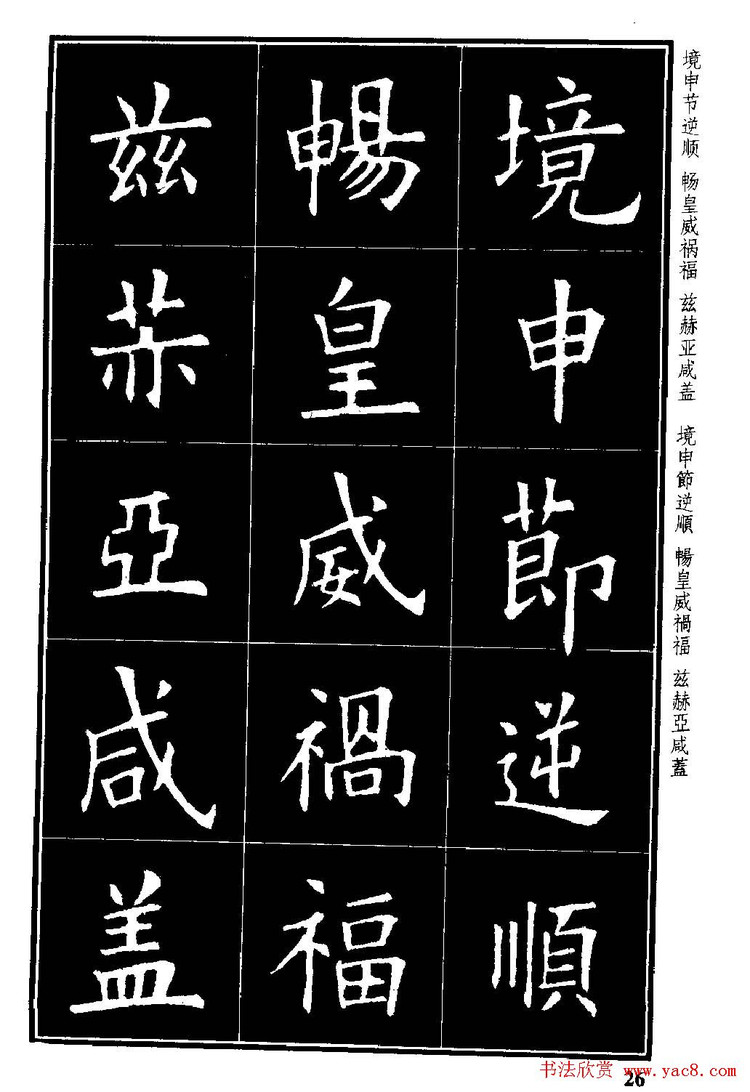 境申节逆顺 畅皇威祸福 兹赫亚咸盖 境申節逆順 暢皇威禍福 兹赫亞咸蓋
境申節逆順
暢皇威禍福
兹赫亞咸盖
26
书法欣赏 www.yac8.com